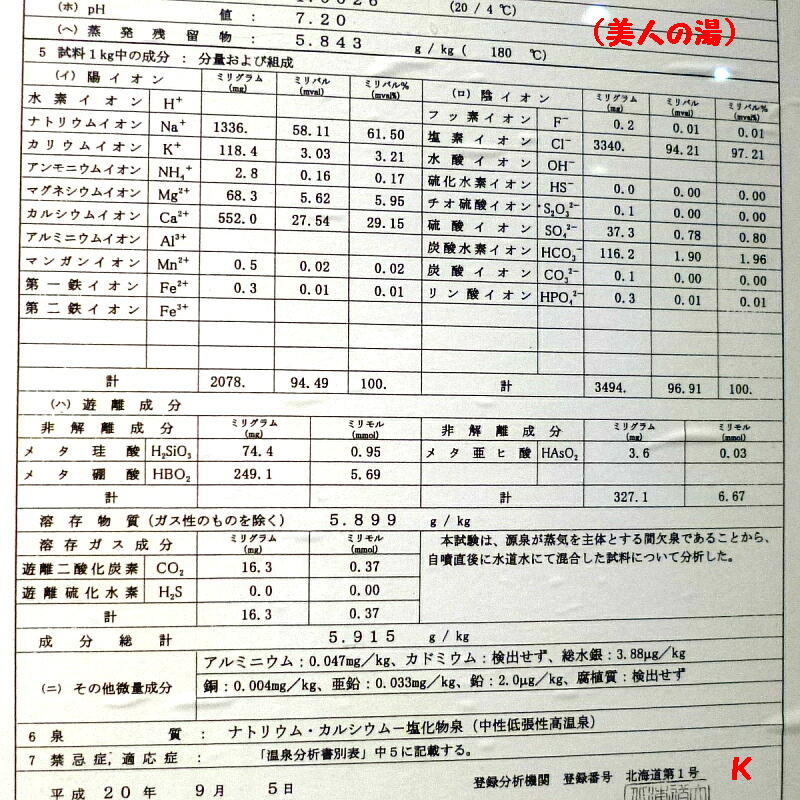 (ホ) pH 値 : 7.20 (20 / 4 ℃)
(美人の湯)
(ヘ) 蒸発残留物 : 5.843 g / kg ( 180 ℃)
5 試料1kg中の成分 : 分量および組成
(イ) 陽イオン ミリグラム (mg) ミリバル (mval) ミリバル% (mval%)
水素イオン H⁺
ナトリウムイオン Na⁺ 1336. 58.11 61.50
カリウムイオン K⁺ 118.4 3.03 3.21
アンモニウムイオン NH₄⁺ 2.8 0.16 0.17
マグネシウムイオン Mg²⁺ 68.3 5.62 5.95
カルシウムイオン Ca²⁺ 552.0 27.54 29.15
アルミニウムイオン Al³⁺
マンガンイオン Mn²⁺ 0.5 0.02 0.02
第一鉄イオン Fe²⁺ 0.3 0.01 0.01
第二鉄イオン Fe³⁺
計 2078. 94.49 100.
(ロ) 陰イオン ミリグラム (mg) ミリバル (mval) ミリバル% (mval%)
フッ素イオン F⁻ 0.2 0.01 0.01
塩素イオン Cl⁻ 3340. 94.21 97.21
水酸イオン OH⁻
硫化水素イオン HS⁻ 0.0 0.00 0.00
チオ硫酸イオン S₂O₃²⁻ 0.1 0.00 0.00
硫酸イオン SO₄²⁻ 37.3 0.78 0.80
炭酸水素イオン HCO₃⁻ 116.2 1.90 1.96
炭酸イオン CO₃²⁻ 0.1 0.00 0.00
リン酸イオン HPO₄²⁻ 0.3 0.01 0.01
計 3494. 96.91 100.
(ハ) 遊離成分
非解離成分 ミリグラム (mg) ミリモル (mmol)
メタ珪酸 H₂SiO₃ 74.4 0.95
メタ硼酸 HBO₂ 249.1 5.69
計
非解離成分 ミリグラム (mg) ミリモル (mmol)
メタ亜ヒ酸 HAsO₂ 3.6 0.03
計 327.1 6.67
溶存物質(ガス性のものを除く) 5.899 g / kg
溶存ガス成分 ミリグラム (mg) ミリモル (mmol)
遊離二酸化炭素 CO₂ 16.3 0.37
遊離硫化水素 H₂S 0.0 0.00
計 16.3 0.37
本試験は、源泉が蒸気を主体とする間欠泉であることから、
自噴直後に水道水にて混合した試料について分析した。
成分総計 5.915 g / kg
(ニ) その他微量成分
アルミニウム:0.047mg/kg、カドミウム:検出せず、総水銀:3.88μg/kg
銅:0.004mg/kg、亜鉛:0.033mg/kg、鉛:2.0μg/kg、腐植質:検出せず
6 泉 質 : ナトリウム・カルシウム-塩化物泉(中性低張性高温泉)
7 禁忌症,適応症 : 「温泉分析書別表」中5に記載する。
平成 20年 9月 5日
登録分析機関 登録番号 北海道第1号
K